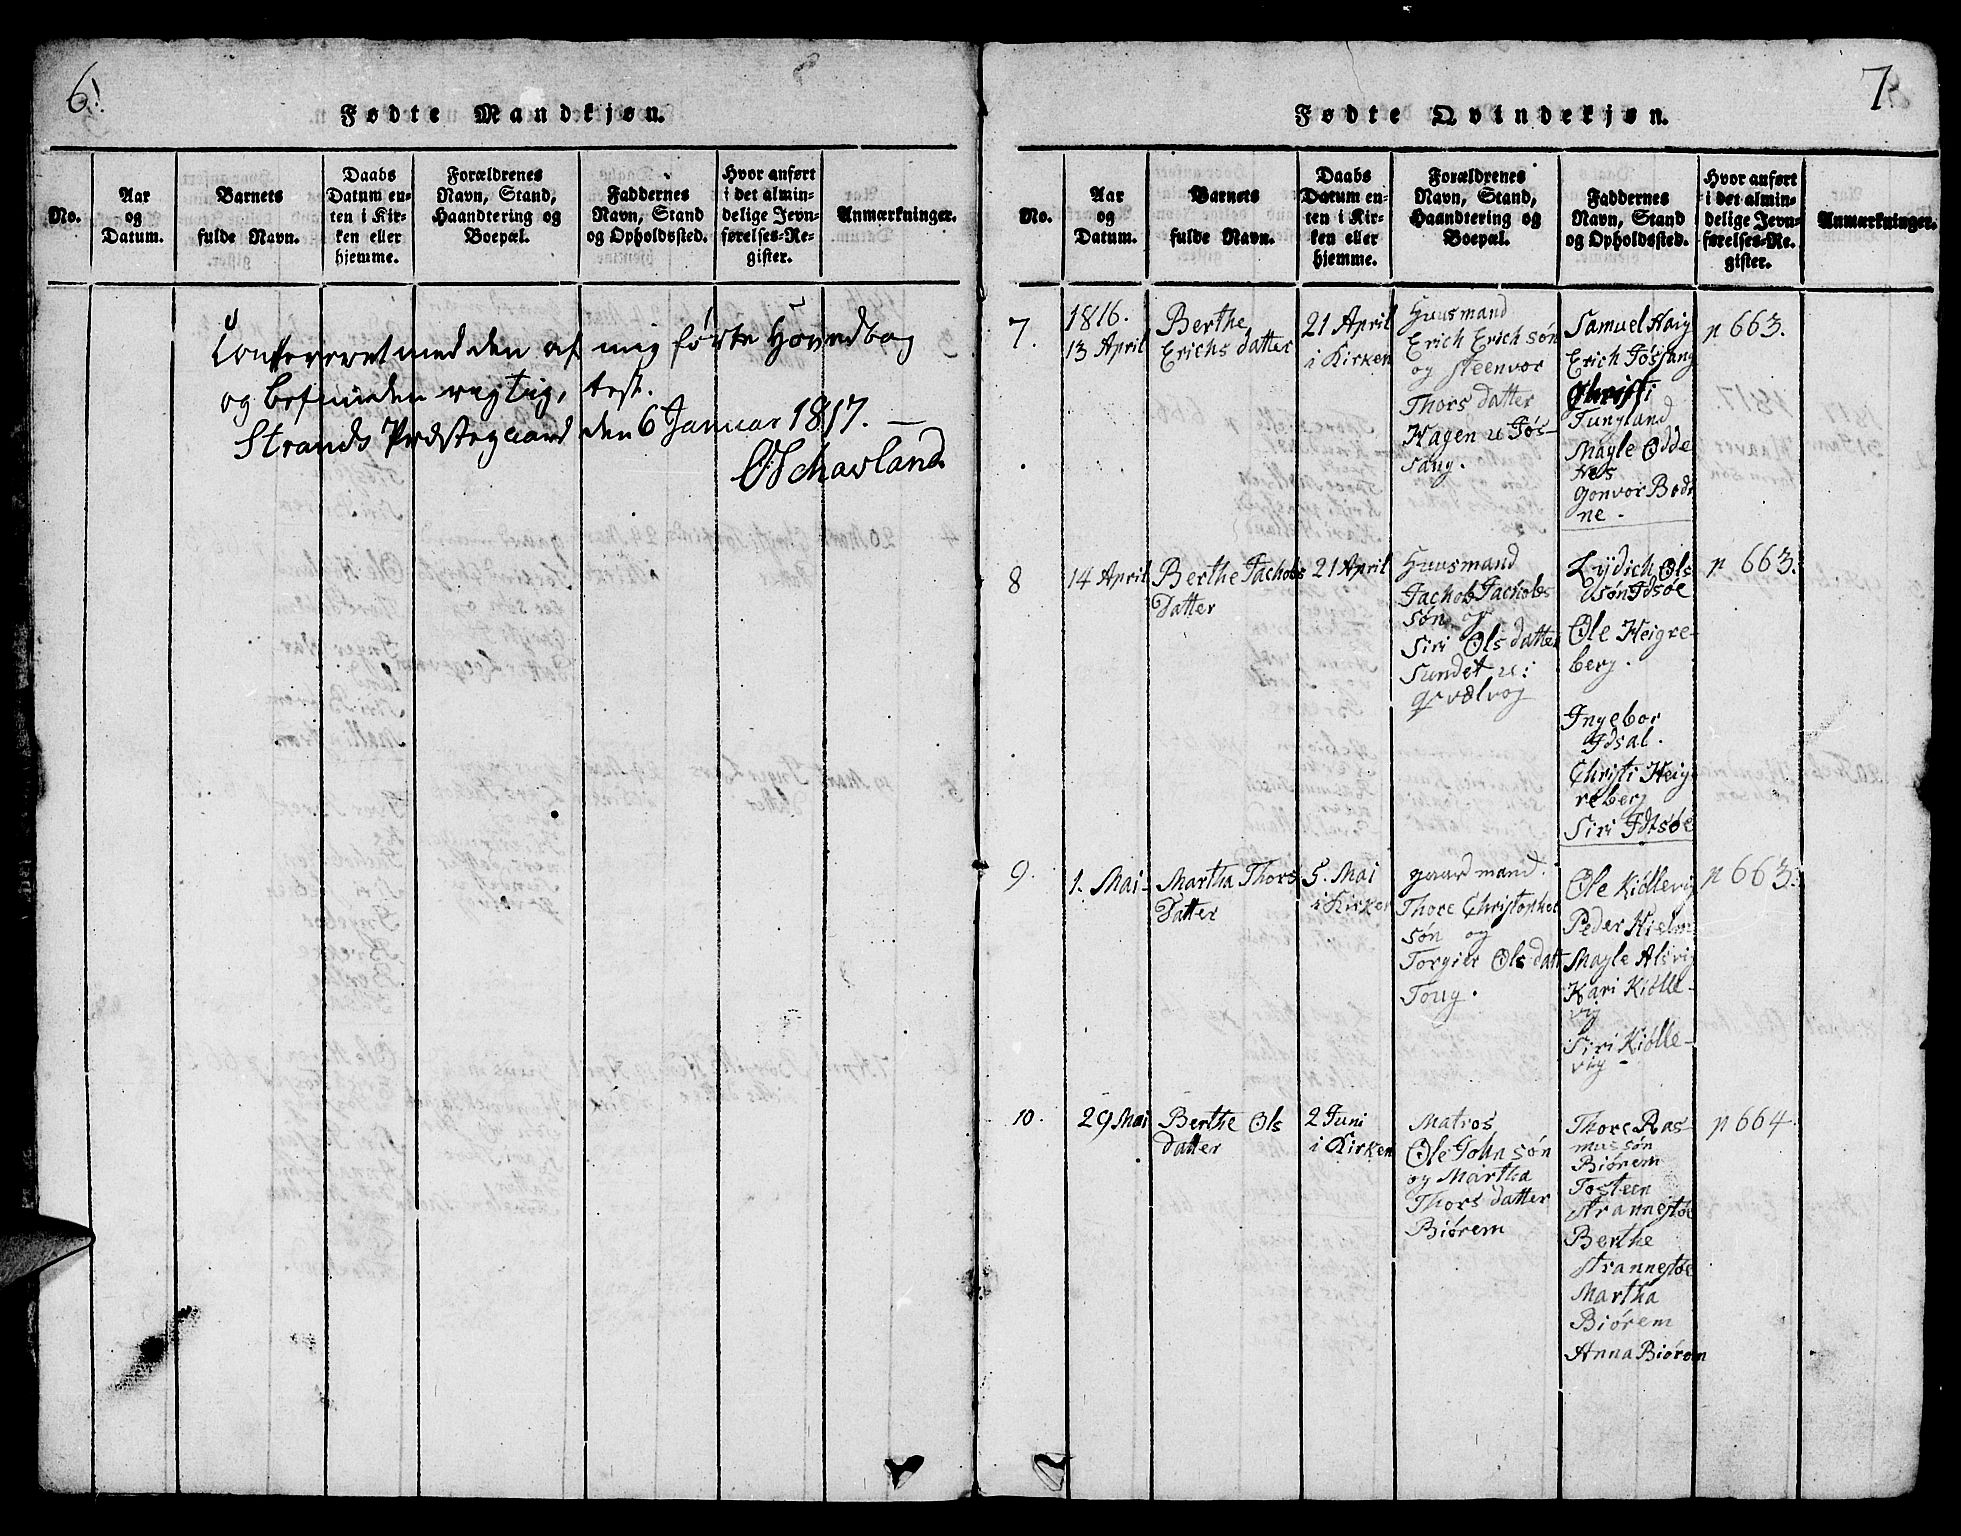 6.
Fødte Mandkjøn.
No.
Aar
og
Datum.
Barnets
fulde Navn.
Daabs
Datum en-
ten i Kir-
ken eller
hjemme.
Forældrenes
Navn, Stand,
Haandtering og
Boepæl.
Faddernes
Navn, Stand
og Opholdssted.
Hvor anført
i det almin-
delige Jevn-
førelses-Re-
gister.
Anmærkninger.
Confereret med den af mig førte Hovedbog
og befunden rigtig, test.
Strands Præstegaard den 6 Januar 1817. —
OSchavland
7.
Fødte Qvindekjøn.
No.
Aar
og
Datum.
Barnets
fulde Navn.
Daabs
Datum en-
ten i Kir-
ken eller
hjemme.
Forældrenes
Navn, Stand,
Haandtering og
Boepæl.
Faddernes
Navn, Stand
og Opholdssted.
Hvor anført
i det almin-
delige Jevn-
førelses-Re-
gister.
Anmærkninger.
7.
1816.
13 April
Berthe
Erichs datter
21 April
i Kirken
Huusmand
Erich Erich søn
og Steenvor
Thors datter
Hagen u Jøs-
sang.
Samuel Haig
Erich Jøssang
Christi
Tungland
Magle Odde
Nes
Gonvor Bodt
ne.
p 663.
8
14 April
Berthe Jachobs
Datter
21 April
Huusmand
Jachob Jachobs
søn og
Siri Ols datter
Sundet u:
qvælvog
Lydich Ols
søn Idsøe
Ole Heigre-
berg.
Ingebor
Idsal.
Christi Heig
reberg
Siri Idsøe
p 663.
9
1. Mai
Martha Thors
Datter
5. Mai
i Kirken
gaardmand.
Thore Christopher
søn og
Torgier Ols datt
Toug.
Ole Kiøllevig
Peder Hielm
Magle Alsvig
Kari Kiølle-
vig
Siri Kiølle-
vig
p 663.
10.
29 Mai
Berthe Ols
datter
2 Juni
i Kirken
Matros
Ole John søn
og Martha
Thors datter
Biørem
Thore Ras
mussøn
Biørem
Tosteen
Strannestøe
Berthe
Strannestøe
Martha
Biørem
Anna Biørem
p 664.